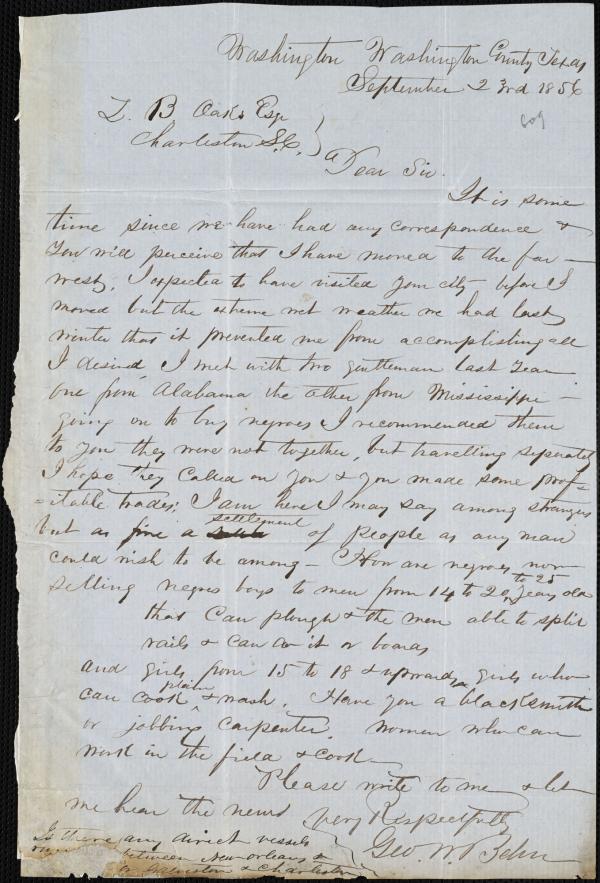 Washington Washington County Texas
September 23rd 1856
609
Z. B Oakes Esqr
Charleston S.C.
Dear Sir.
It is some
time since we have had any correspondence &
You will perceive that I have moved to the far
west, I expected to have visited your city before I
moved but the extreme wet weather we had last
winter that it prevented me from accomplishing all
I desired, I met with two gentleman last year
one from Alabama the other from Mississippi
going on to buy negroes I recommended them
to you they were not together, but travelling seperately
I hope they called on you & you made some prof-
=itable trades; I am here I may say among strangers
but as fine a settlement of people as any man
could wish to be among – How are negroes now
selling negro boys to men from 14 to 20, to 25 years old
that can plough & the men able to split
rails & can or boards
and girls from 15 to 18 & upwards girls who
can cook plain & wash. Have you a blacksmith
or jobbing carpenter, women who can
work in the field & cook
Please write to me & let
me hear the news
very Respectfully
Geo. W. Behn
Is there any direct vessels
between New orleans &
or Galveston & Charleston